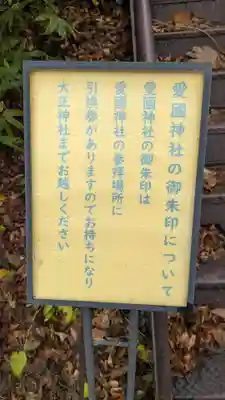 愛國神社の御朱印について
愛國神社の御朱印は
愛國神社の参拝場所に
引換券がありますのでお持ちになり
大正神社までお越しください